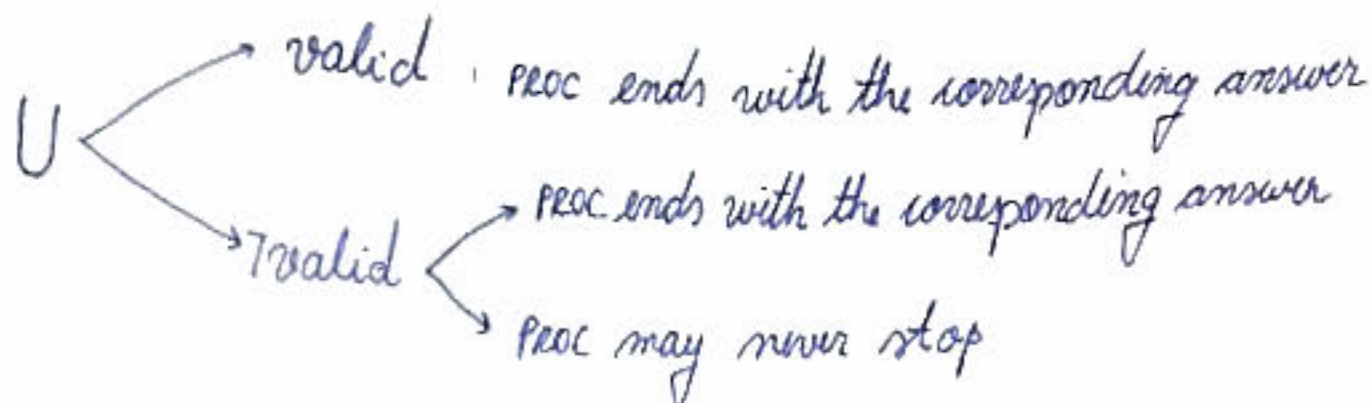 valid , PROC ends with the corresponding answer
U
PROC ends with the corresponding answer
¬valid
PROC may never stop